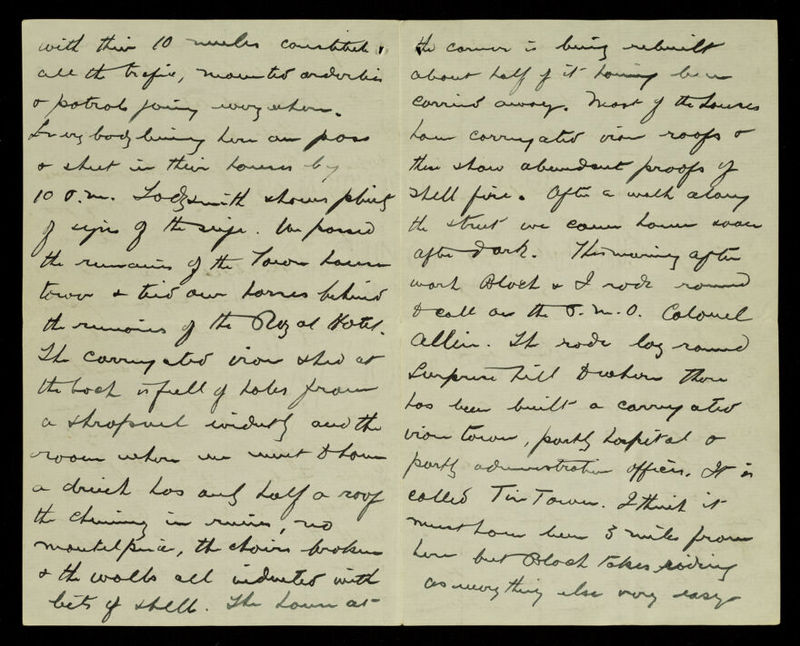 with their 10 mules constitute
all the trafic, mounted orderlies
& patrols going everywhere.
Everybody living here on pass
& shut in their houses by
10 P.m. Ladysmith shows plenty
of signs of the siege. We passed
the remains of the Town house
tower & tied our horses behind
the remains of the Royal Hotel.
The corrugated iron shed at
the back is full of holes from
a shrapnel evidently and the
room where we went to have
a drink has only half a roof
the chimney in ruins, no
mantelpiece, the chairs broken
& the walls all indented with
bits of shell. The house at
the corner is being rebuilt
about half of it having been
carried away. Most of the houses
have corrugated iron roofs &
these show abundant proofs of
shell fire. After a walk along
the street we came home soon
after dark. This morning after
work Bloch & I rode round
to call on the P.M.O. Colonel
Allin. The rode lay round
Surprise Hill to where there
has been built a corrugated
iron town, partly hospital &
partly administration offices. It is
called Tin Town. I think it
must have been 3 miles from
here but Bloch takes riding
as everything else very easy